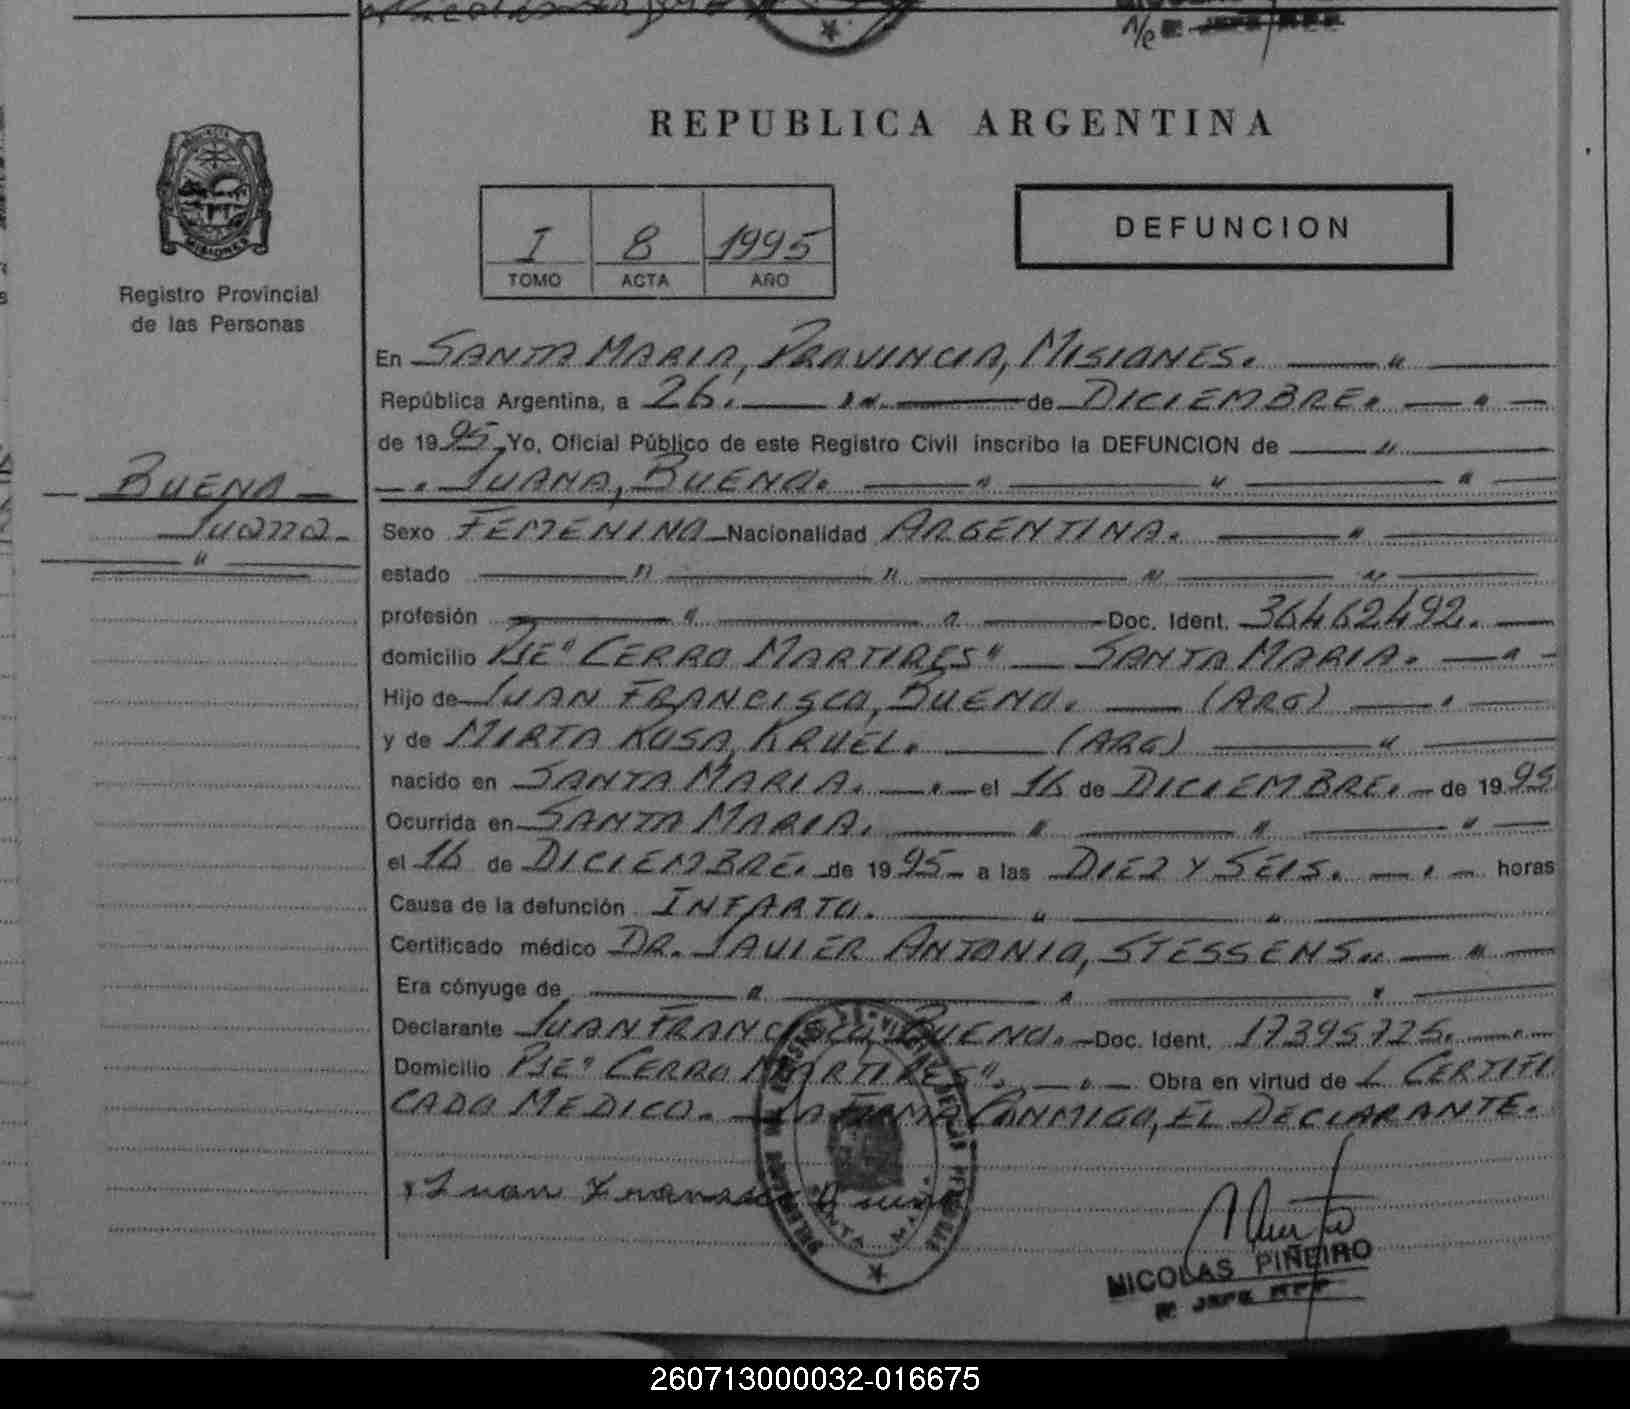 REPUBLICA ARGENTINA
MISIONES
Registro Provincial
de las Personas
I 8 1995
TOMO ACTA AÑO
DEFUNCION
En SANTA MARIA, PROVINCIA, MISIONES.
República Argentina, a 26. de DICIEMBRE.
de 1995 Yo, Oficial Público de este Registro Civil inscribo la DEFUNCION de
JUANA, BUENO.
BUENO
Juana
Sexo FEMENINO Nacionalidad ARGENTINA.
estado
profesión Doc. Ident. 36462492.
domicilio PJE" CERRO MARTIRES" SANTA MARIA.
Hijo de JUAN FRANCISCO, BUENO. (ARG)
y de MIRTA ROSA, KRUEL. (ARG)
nacido en SANTA MARIA. el 16 de DICIEMBRE. de 1995
Ocurrida en SANTA MARIA.
el 16 de DICIEMBRE. de 1995 a las DIEZ Y SEIS. horas
Causa de la defunción INFARTO.
Certificado médico DR. JAVIER ANTONIO, STESSENS.
Era cónyuge de
Declarante JUAN FRANCISCO, BUENO. Doc. Ident. 17395725.
Domicilio PJE" CERRO MARTIRES". Obra en virtud de L CERTIFI
CADO MEDICO. LA FIRMA CONMIGO, EL DECLARANTE.
Juan Francisco Bueno
NICOLAS PIÑEIRO
260713000032-016675